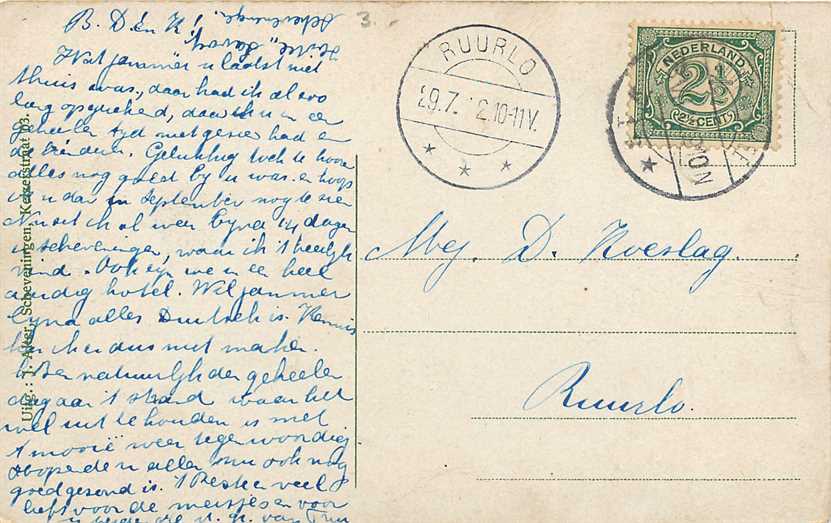 B. D. en K!
Wat jammer u laatst niet
thuis was, daar had ik al zoo
lang op gerekend, daar ik u in een
geheelen tijd niet gezien had en
de kinderen. Gelukkig toch te hooren
alles nog goed bij u was en hoop
ik u dan in September nog te zien
Nu zit ik al weer bijna 14 dagen
in Scheveningen, waar ik 't heerlijk
vind. Ook zijn we in een heel
aardig hotel. Wel jammer
bijna alles Duitsch is. Kennis
kan ik er dus niet maken.
Ben natuurlijk den geheelen
dag aan 't strand waar het
wel uit te houden is met
't mooie weer tegenwoordig
Hoopende u allen nu ook nog
goed gezond is. 't Beste en veel
liefs voor de meisjes en voor
van
Scheveningen
Uitg.: J. Aker, Scheveningen, Keizerstraat 93.
3.-
RUURLO
29.7. 12.10-11V.
NEDERLAND
2½
(2½ CENT)
Mej. D. Koeslag.
Ruurlo.